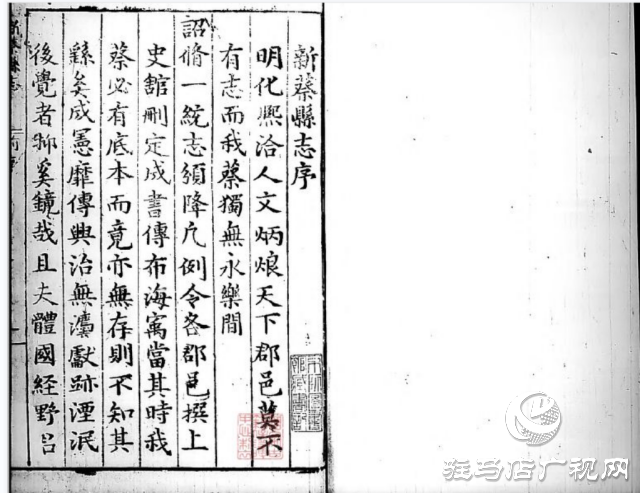 新蔡縣志序
明化熈洽人文炳烺天下郡邑莫不
有志而我蔡獨無永樂間
詔脩一統志頒降凡例令各郡邑撰上
史舘刪定成書傳布海寓當其時我
蔡必有底本而竟亦無存則不知其
繇矣成憲靡傳興治無
獻跡湮泯
後覺者抑奚鏡哉且夫體國経野吕
驻马店广视网